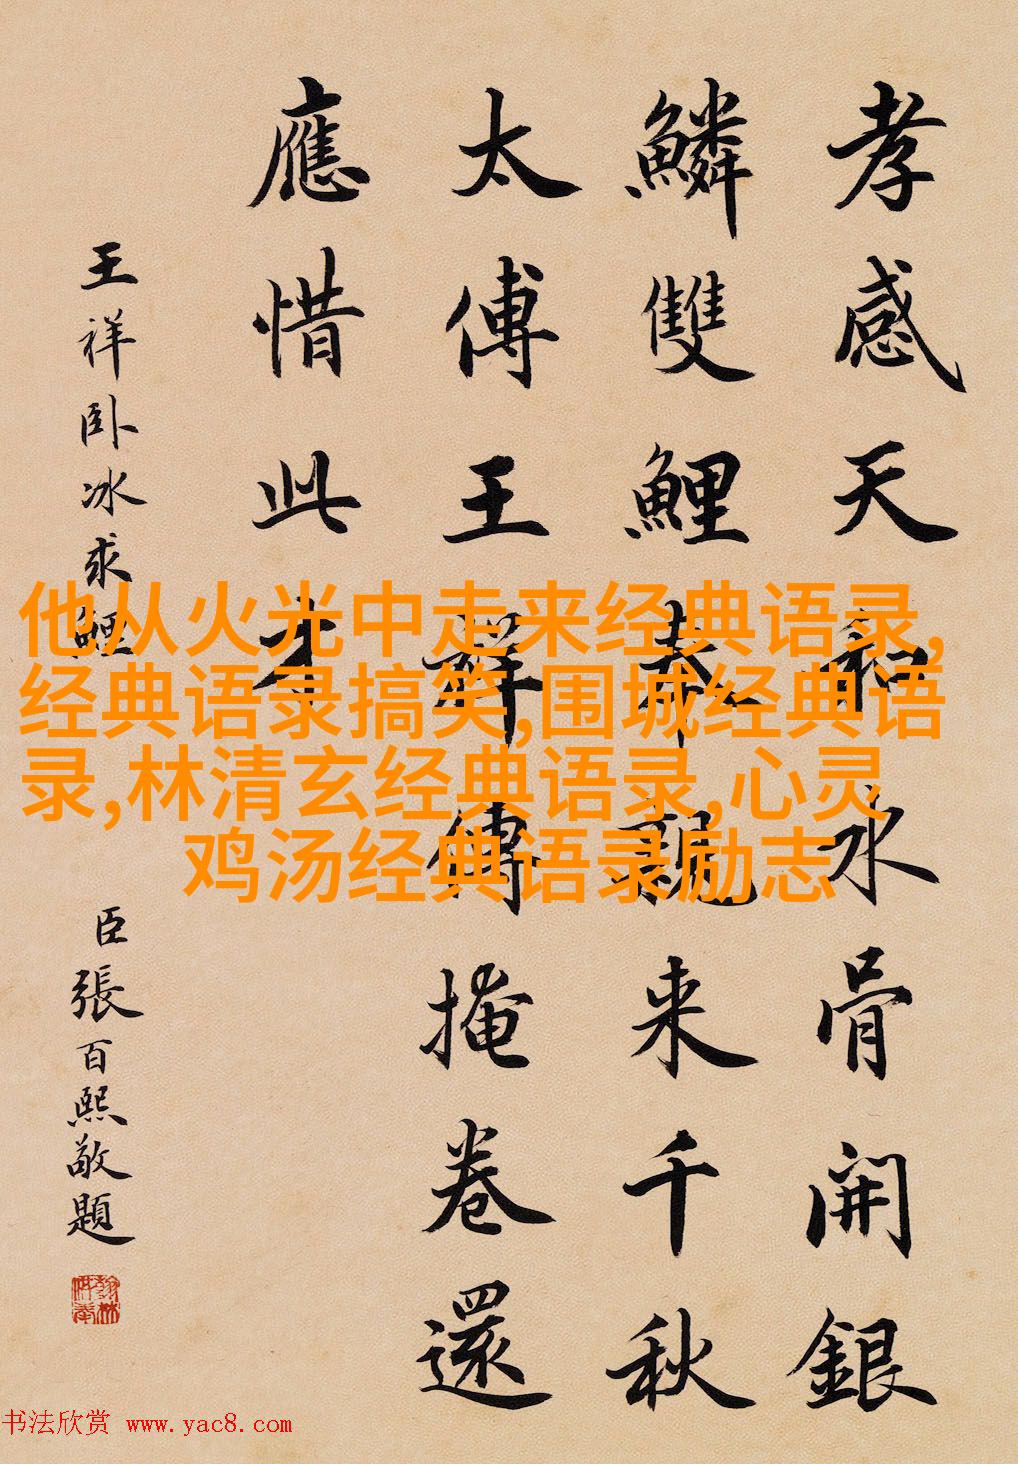 孝感天和冰骨開銀
鱗雙鯉奉親来千秋
太傅王祥傳掩卷還
應惜此才
王祥卧冰求鯉
臣張百熙敬題
他从火光中走来经典语录,
经典语录搞笑,围城经典语
录,林清玄经典语录,心灵
鸡汤经典语录励志
书法欣赏 www.yac8.com